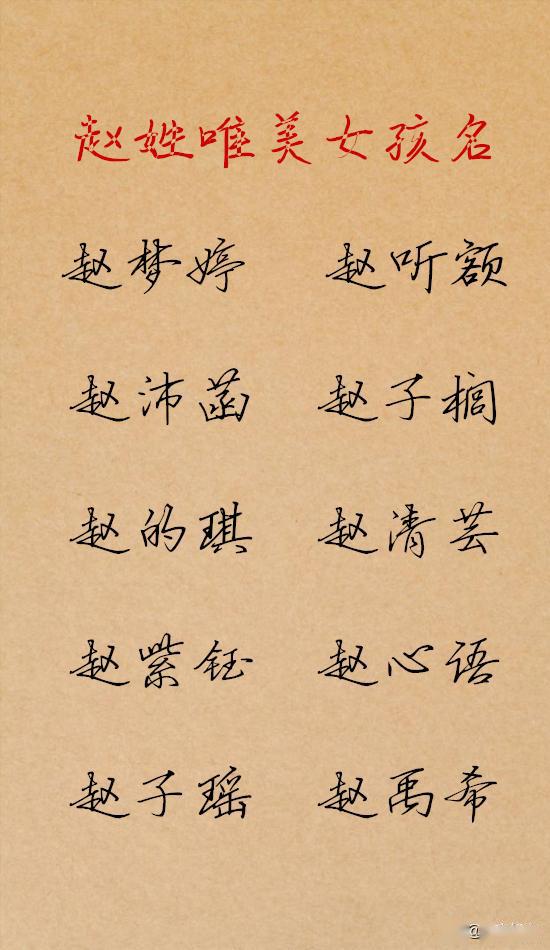 赵姓唯美女孩名
赵梦婷 赵听额
赵沛菡 赵子榈
赵的琪 赵清芸
赵紫钰 赵心语
赵子瑶 赵禹希
@